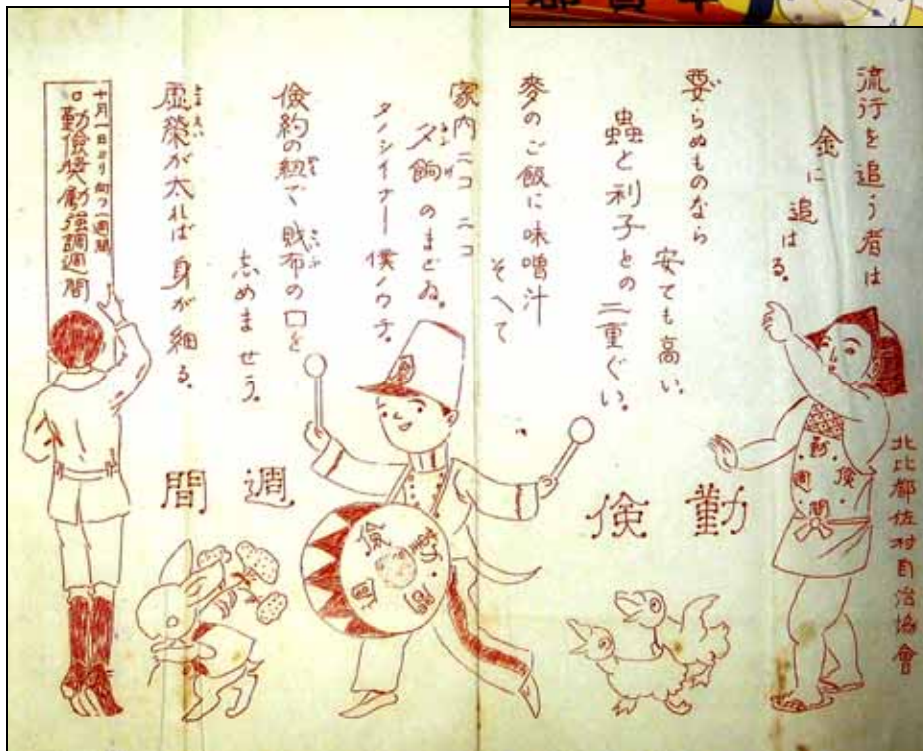 流行を追う者は
金に追はる。
要らぬものなら
安ても高い。
蟲と利子との二重ぐい。
麥のご飯に味噌汁
そへて
家内ニコニコ
夕餉のまどゐ。
タノシイナー僕ノウチ。
儉約の紐で財布の口を
志めませう。
虚榮が太れば身が細る。
十月一日ヨリ向フ一週間
勤儉奬勵強調週間
勤儉
週間
勤儉週間
勤儉週間
北比都佐村自治協會